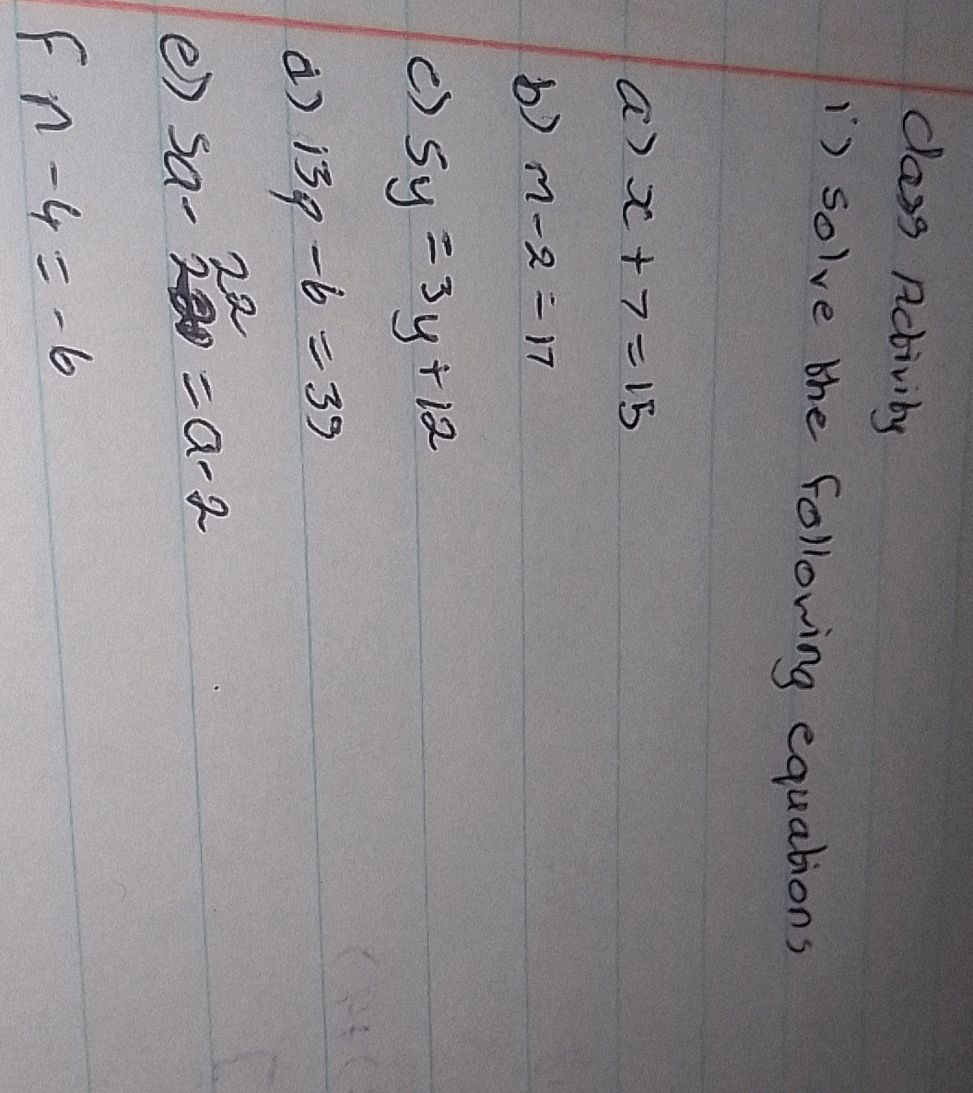 Class Activity
1) Solve the following equations
a) x + 7 = 15
b) m - 2 = 17
c) 5y = 3y + 12
d) 13p - 6 = 33
e) 5a - 22 = a - 2
F n - 4 = - 6